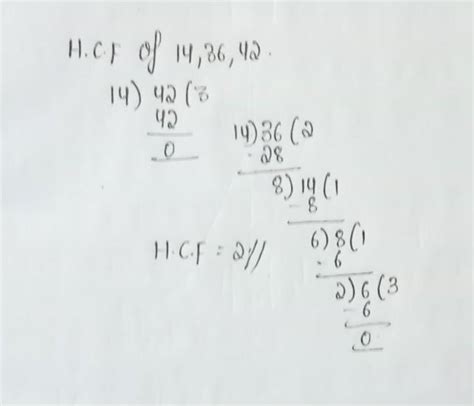 H.C.F of 14,36,42.
14) 42 (3
42
0
14) 36 (2
- 28
8) 14 (1
- 8
6) 8 (1
- 6
2) 6 (3
- 6
0
H.C.F = 2//